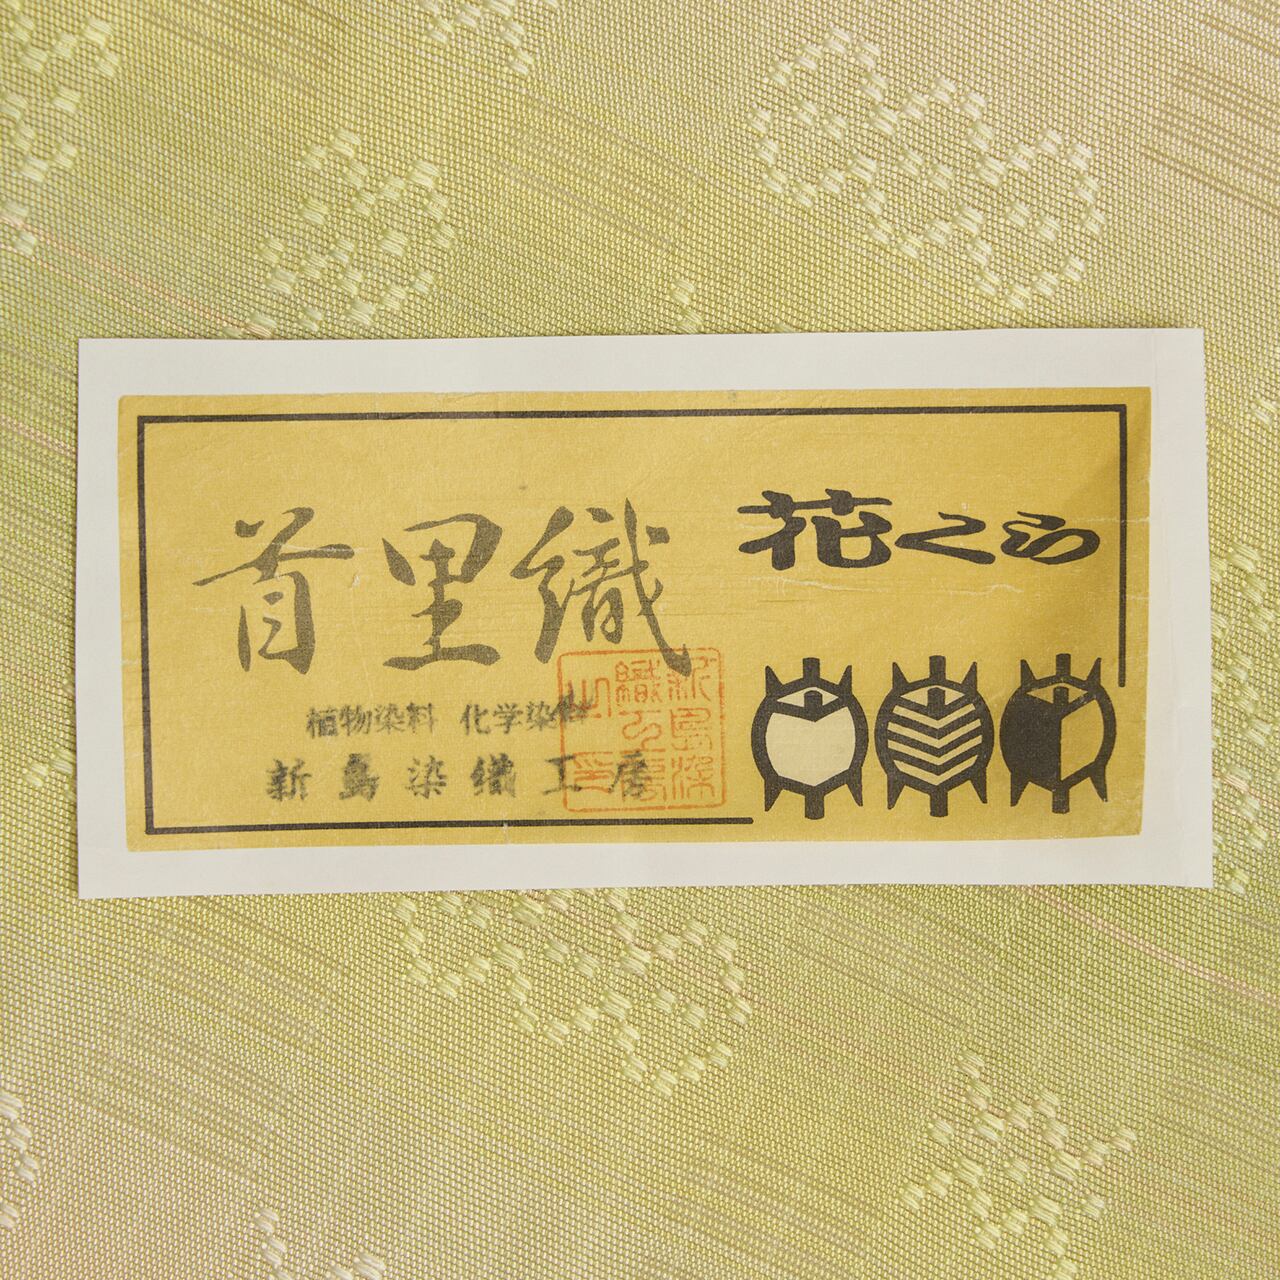 首里織
花くら
植物染料 化学染料
新島染織工房
新島染織工房之印